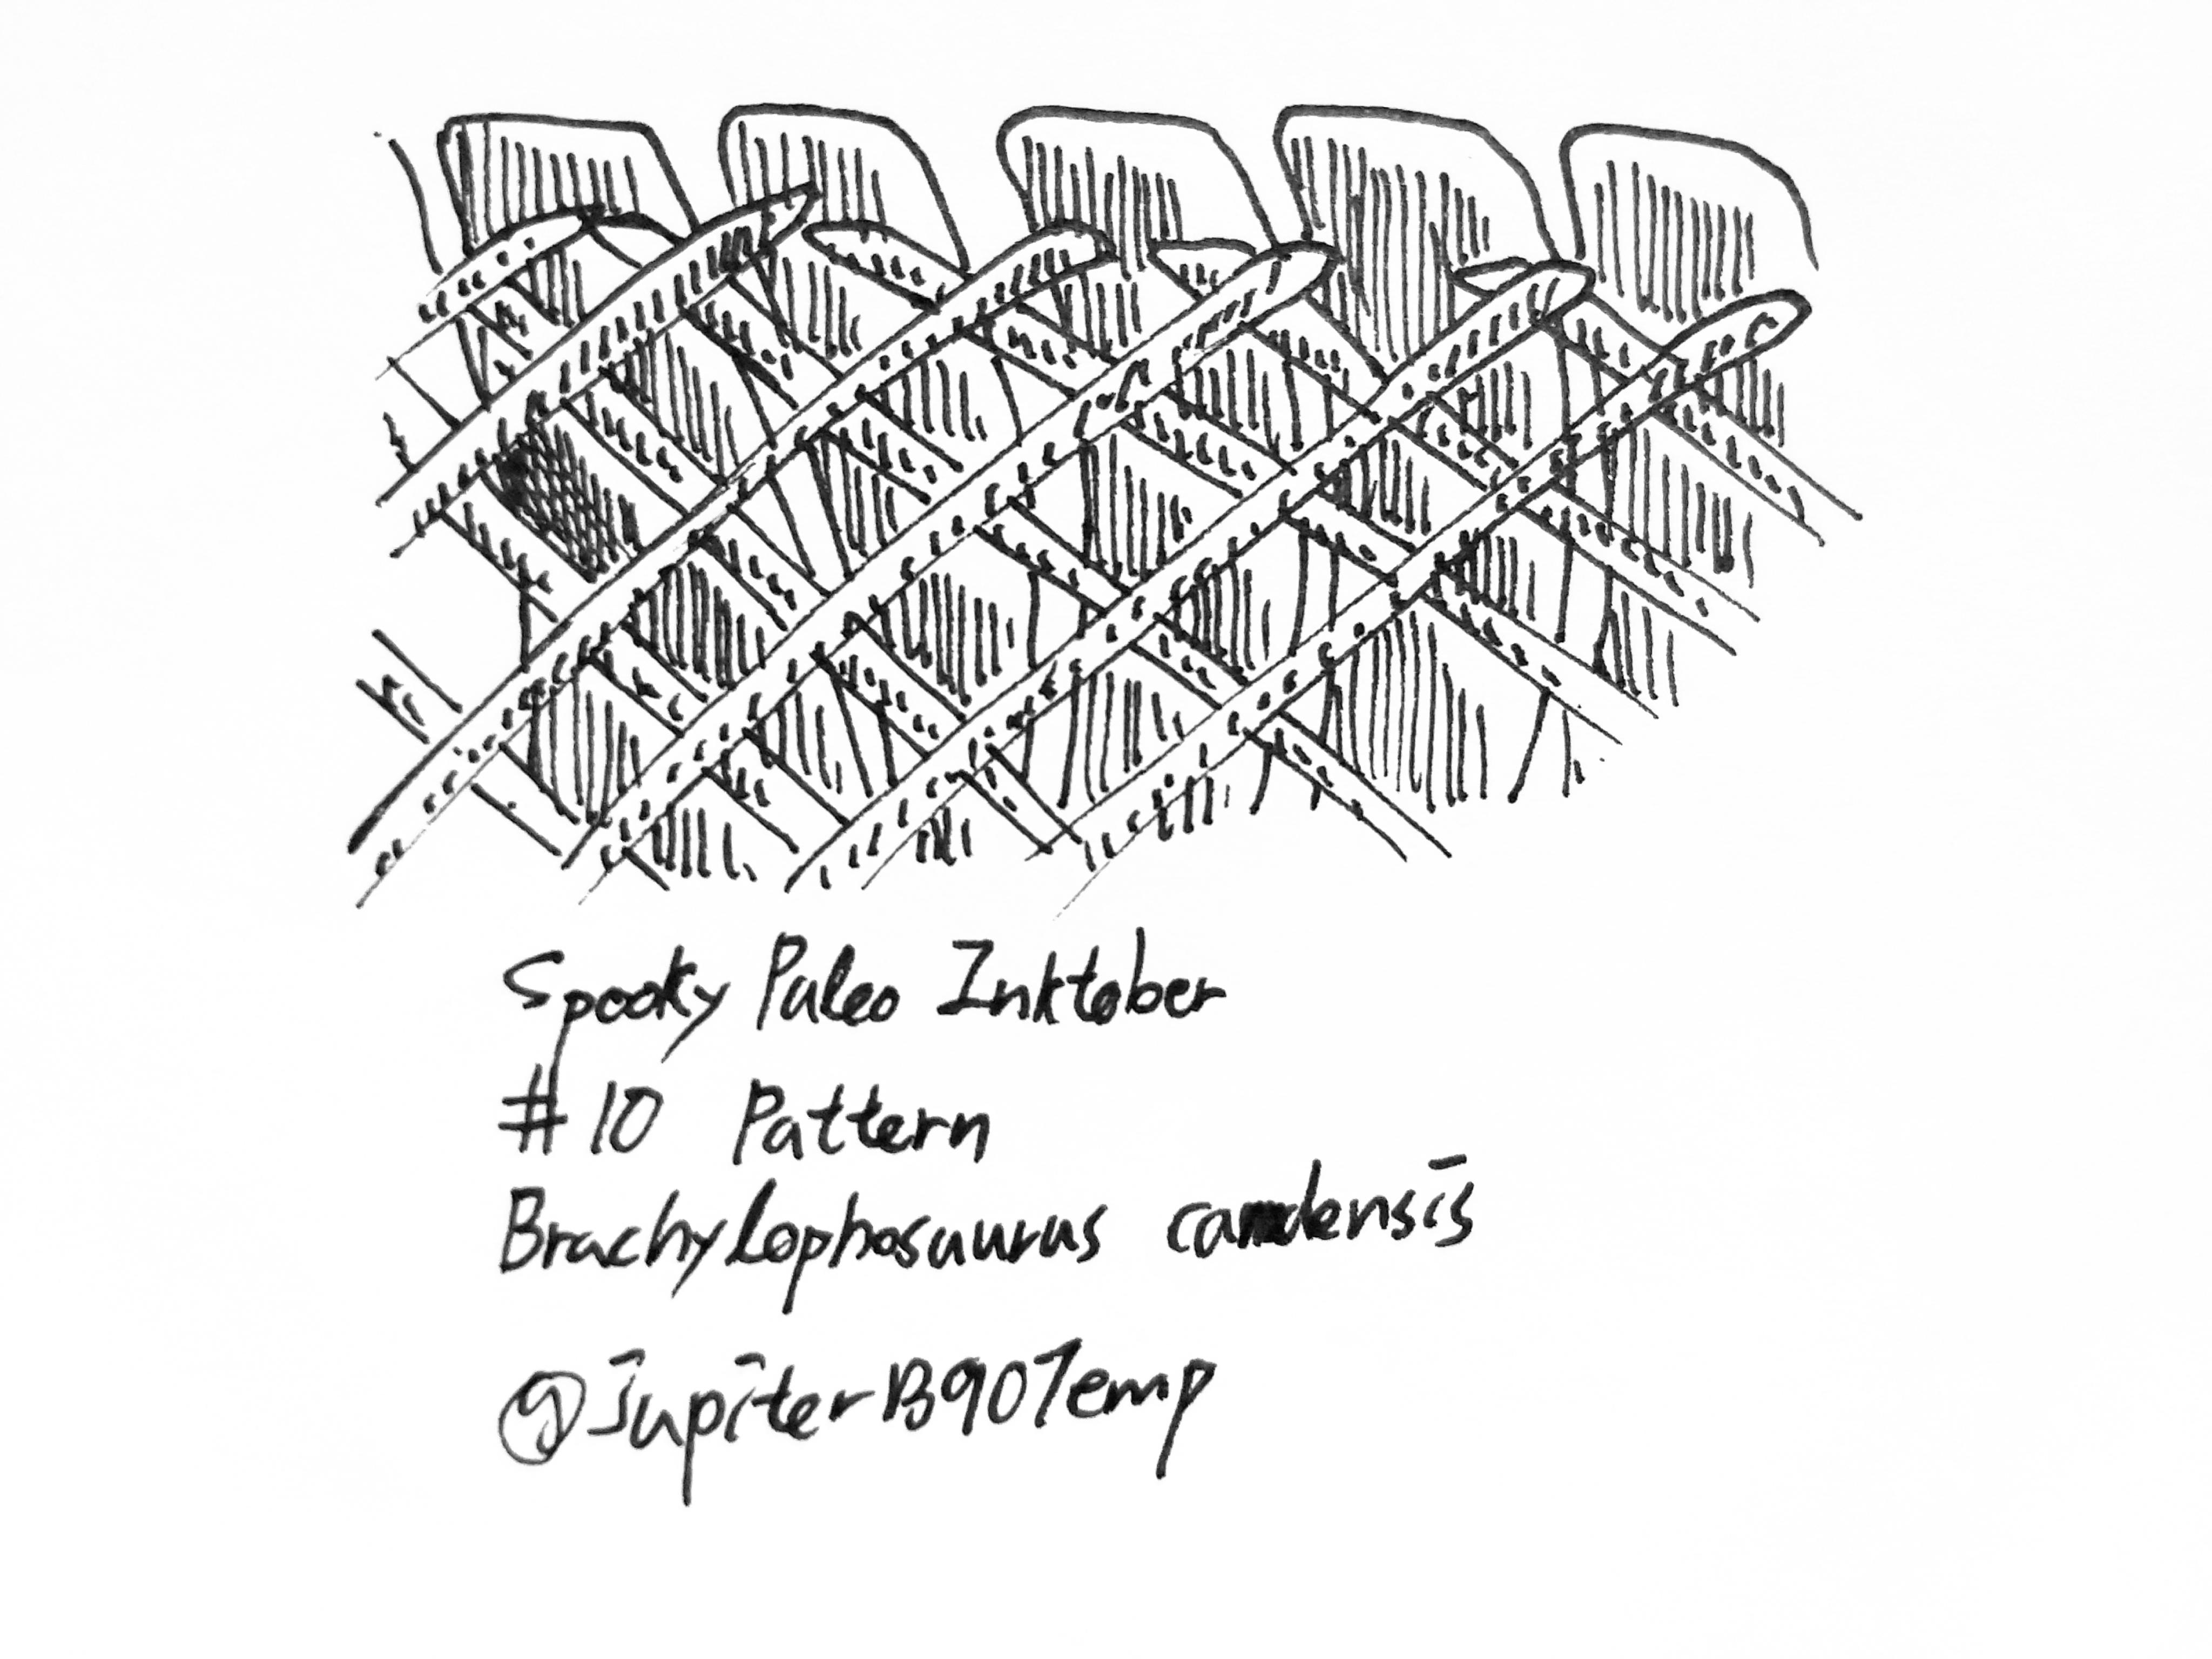 Spooky Paleo Inktober
#10 Pattern
Brachylophosaurus candensis
@JupiterB90Temp